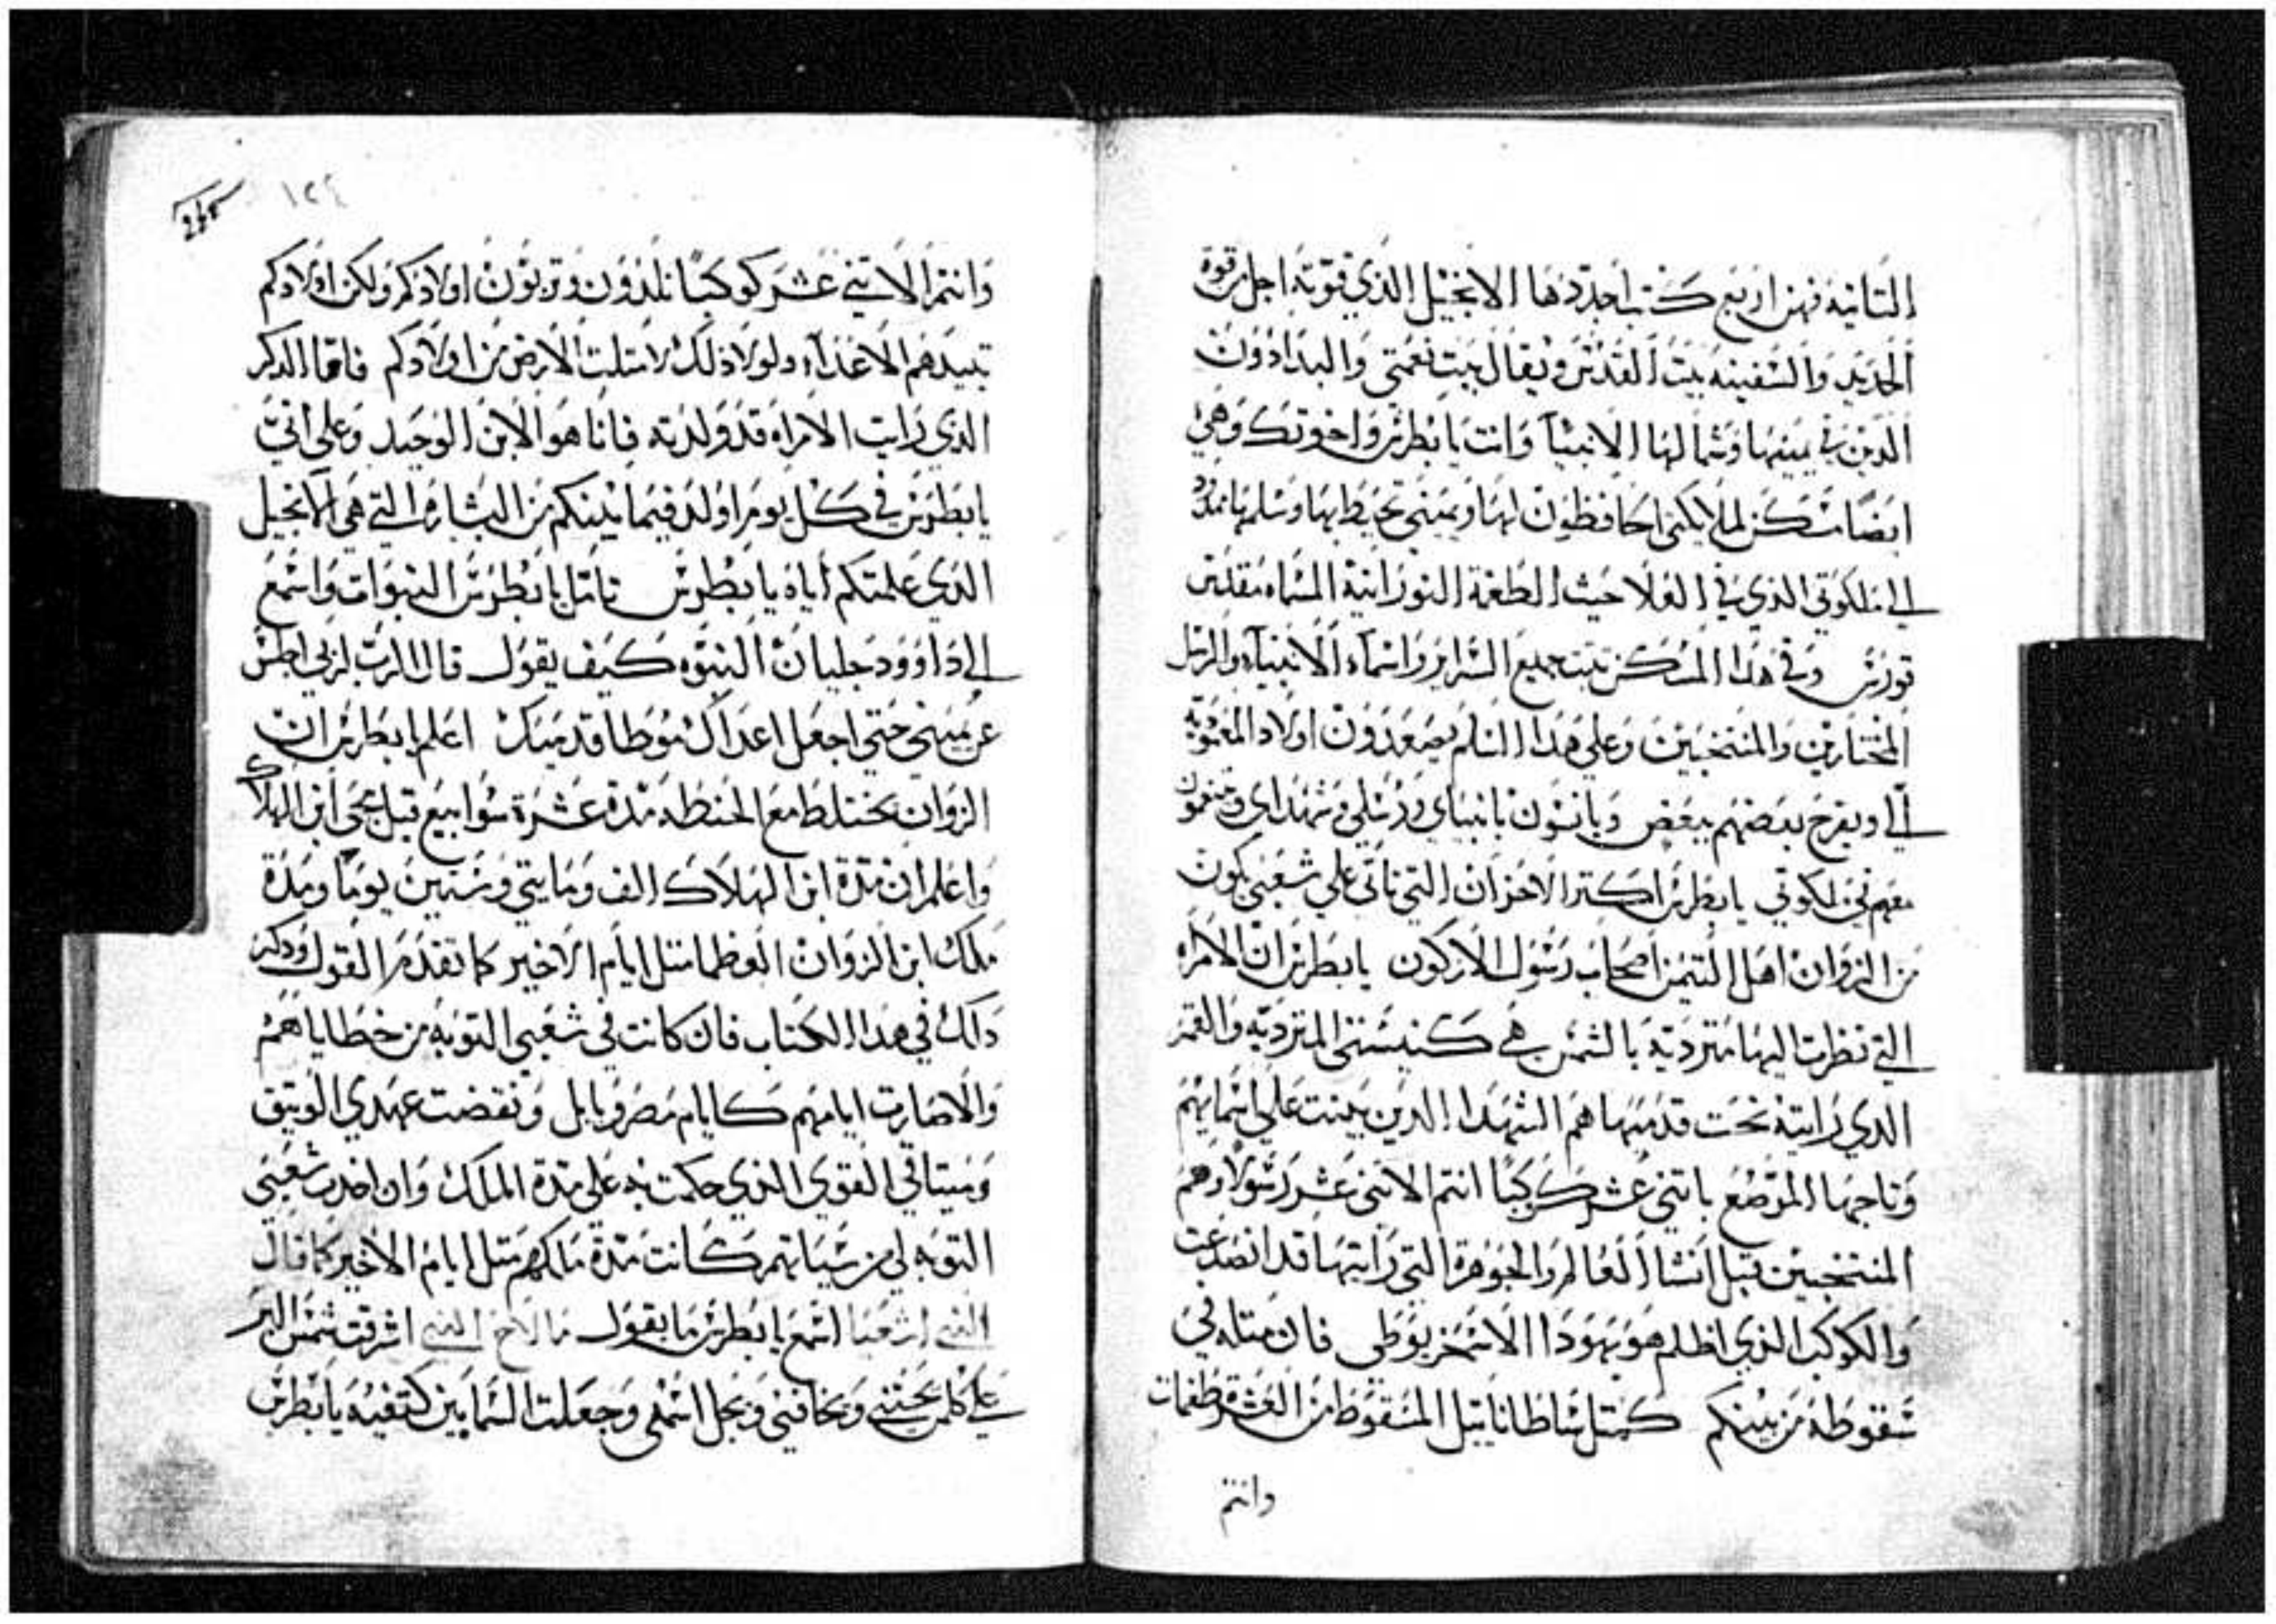 الثانية فهن اربع كتب احددها الانجيل الذي قوته اجل من قوة
الحديد والسفينه بيت القدس ويقال بيت نعمتي والبدادون
الدين في يمينها وشمالها الانبيا وانت يا بطرس واخوتك وهي
ايضا مسكن لملايكتي احافظون لها ويميني تحيط بها وسلمها
الي ملكوتي الذي في العلا حيث الطغمة النورانية السماه
وفي هذا المسكن تبت جميع السراير واسماء الانبياء والرسل
المختارين والمنتخبين وعلي هذا السلم يصعدون اولاد المعموديه
الي ويفرح بعضهم ببعض ويانسون بانبياي ورسلي وشهداي
معهم في ملكوتي يا بطرس اكتر الاحزان التي تاتي علي شعبي يكون
من الزوان اهل التيمن اصحاب رسول الاركون يا بطرس ان الامراه
التي نظرت اليها متردية بالشمس هي كنيستي المتردية والقمر
الدي رايته تحت قدميها هم الشهدا الدين بنيت علي اسمايهم
وتاجها المرصع باتني عشر كوكبا انتم الاتني عشر رسولا وهم
المنتخبين قبل انشا العالم والجوهرة التي رايتها قد انصدعت
والكوكب الذي اظلم هو يهودا الاسخريوطي فان مثله في
سقوطه من بينكم كمتل ساطانايل المسقوط من العشرة طغمات
وانتم
١٢٤
وانتم الاتني عشر كوكبا تلدون وتربون اولادكم ولكن اولادكم
تبيدهم الاعداء ولولا ذلك لامتلت الارض من اولادكم فاما الدكر
الذي رايت الامراه قد ولدته فانا هو الابن الوحيد وعلي اني
يا بطرس في كل يوم اولد فيما بينكم من البشارة التي هي الانجيل
الذي علمتكم اياه يا بطرس تامل يا بطرس النبوات واسمع
الي داوود جليان النبوه كيف يقول قال الرب لربي اجلس
عن يميني حتي اجعل اعداك موطا قدميك اعلم يا بطرس ان
الزوان يختلط مع الحنطه مدة عشرة سوابيع قبل مجي ابن الهلاك
واعلم ان مدة ابن الهلاك الف ومايتي وستين يوما ومدة
ملك ابن الزوان العظما متل ايام الاخير كما تقدم القول ودكر
دلك في هدا الكتاب فان كانت في شعبي التوبه من خطاياهم
والا صارت ايامهم كايام مصر وبابل ونقضت عهدي الوتيق
وميتاقي القوي الذي حكمت به علي مدة الملك وان اخدت شعبي
التوبه لي من سياتهم كانت مدة ملكهم متل ايام الاخير كما قال
النبي اشعيا اسمع يا بطرس ما يقول ملاخي النبي اشرقت شمس البر
علي كلمن يحبني ويخافني ويجل اسمي وجعلت السما بين كتفيه يا بطرس